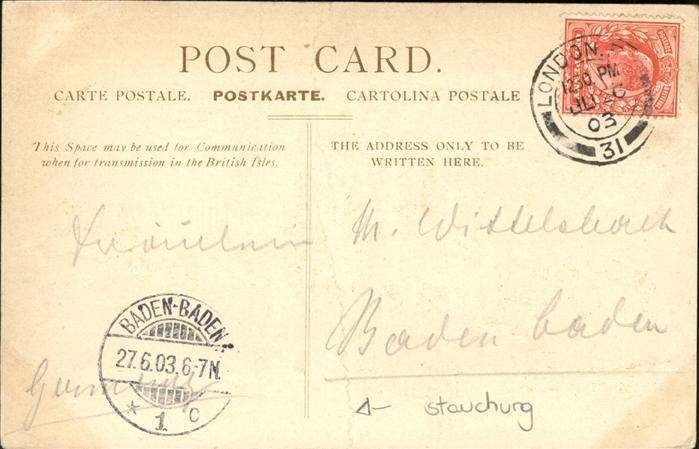 POST CARD.
CARTE POSTALE. POSTKARTE. CARTOLINA POSTALE
This Space may be used for Communication
when for transmission in the British Isles.
THE ADDRESS ONLY TO BE
WRITTEN HERE.
LONDON.
12.30 PM
03
31
Fräulein M. Wittelsbach
Baden baden
BADEN-BADEN
27.6.03.6-7N.
* 1 c
Germany
stauchung